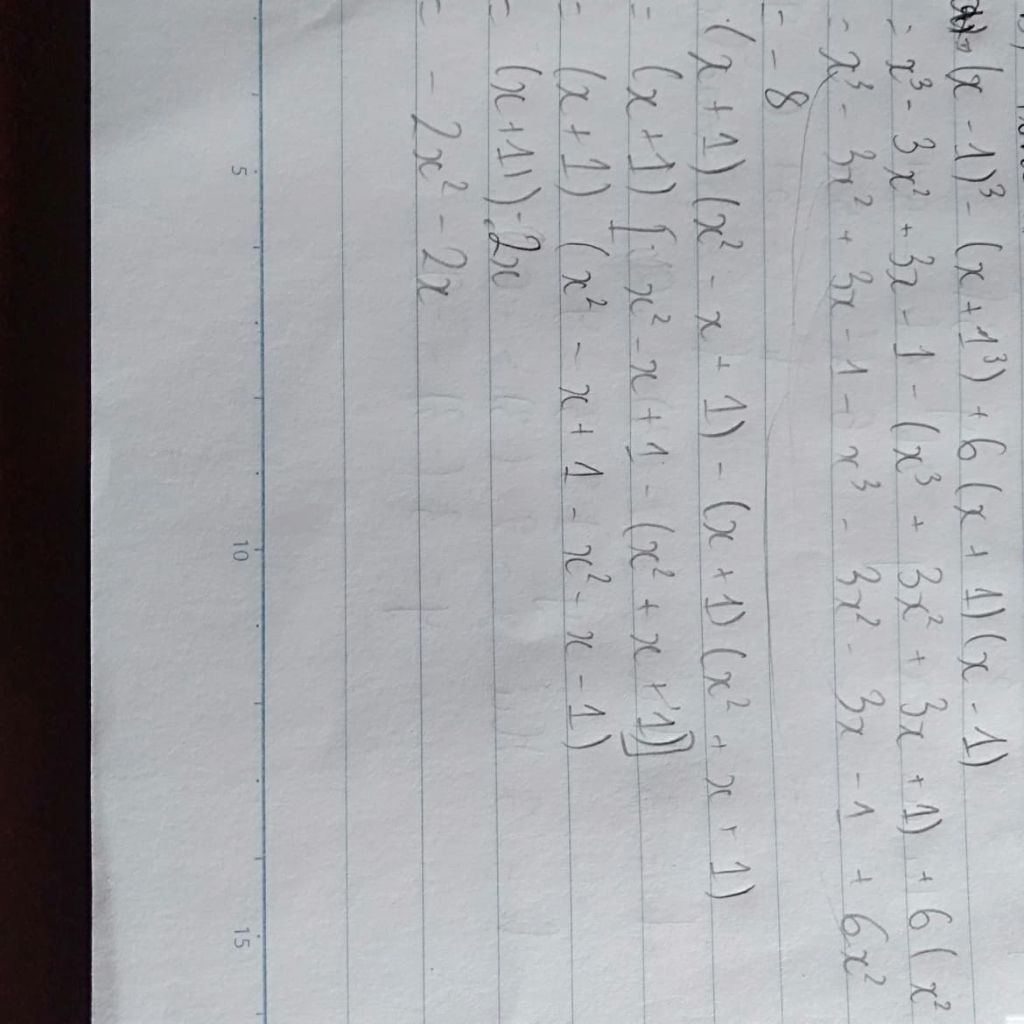 (x - 1)³ - (x + 1³) + 6(x + 1)(x - 1)
= x³ - 3x² + 3x - 1 - (x³ + 3x² + 3x + 1) + 6(x²
= x³ - 3x² + 3x - 1 - x³ - 3x² - 3x - 1 + 6x²
= - 8
(x + 1)(x² - x + 1) - (x + 1)(x² + x + 1)
= (x + 1) [x² - x + 1 - (x² + x + 1)]
= (x + 1) (x² - x + 1 - x² - x - 1)
= (x + 1) - 2x
= - 2x² - 2x
5 10 15